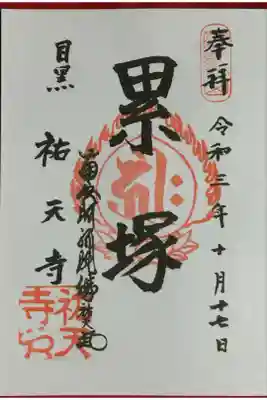 奉拝
令和三年十月十七日
累塚
目黒
祐天寺
祐天寺